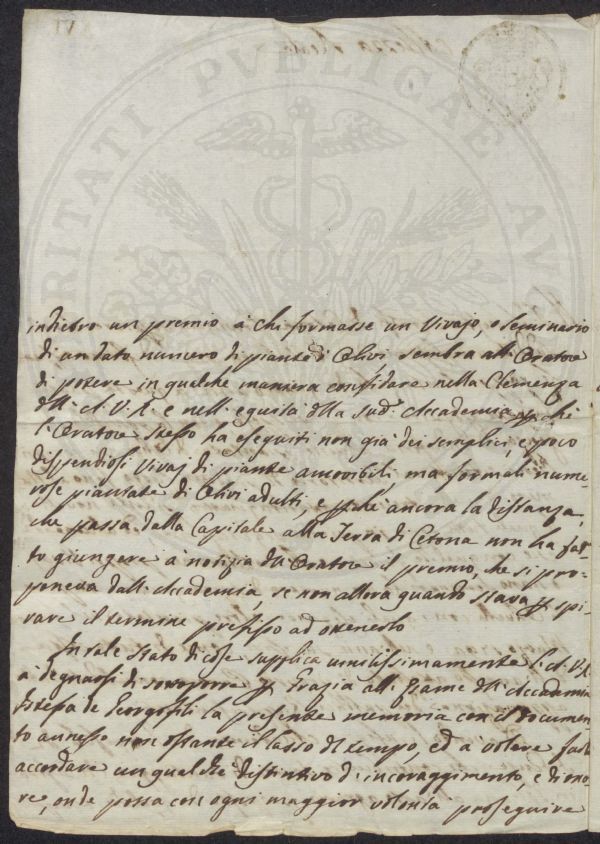 indietro un premio à chi formasse un Vivajo, o Seminario
di un dato numero di piante d'Olivi sembra all'Oratore
di potere in qualche maniera confidare nella Clemenza
dell'A.V.R. e nell'equità della sud.ª Accademia, p chè
l'Oratore stesso ha eseguiti non già dei semplici, e poco
dispendiosi Vivaj di piante amovibili, ma formali nume-
rose piantate di Olivi adulti, e p chè ancora la distanza,
che passa dalla Capitale alla Terra di Cetona non ha fat-
to giungere à notizia dell'Oratore il premio, che si pro-
poneva dall'Accademia, se non allora quando stava p spi-
rare il termine prefisso ad ottenerlo
In tale stato di cose supplica umilissimamente l'A.V.R.
à degnarsi di sottoporre p Grazia all'Esame dell'Accademia
istessa de Georgofili la presente memoria con il Documen-
to annesso non ostante il lasso del tempo, ed à volere farli
accordare un qualche distintivo d'incoraggimento, e di ono-
re, onde possa con ogni maggior volontà proseguire
RITATI PVBLICAE AVG